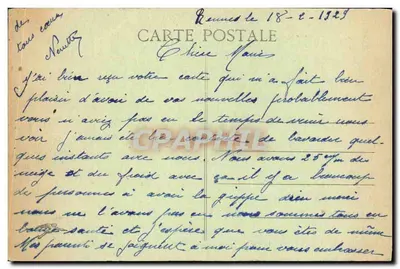 Rennes le 18-2-1929
CARTE POSTALE
de
tous cœur
Chère
J'ai bien reçu votre carte qui m'a fait bien
plaisir d'avoir de vos nouvelles probablement
vous n'aviez pas eu le temps de venir nous
voir j'aurais été de bavarder quel-
ques instants avec nous. Nous avons 25 cm de
neige et du froid avec ça il y a beaucoup
de personnes à avoir la grippe dieu merci
nous ne l'avons pas eu nous sommes tous en
bonne santé et j'espère que vous êtes de même
Mes parents se joignent à moi pour vous embrasser